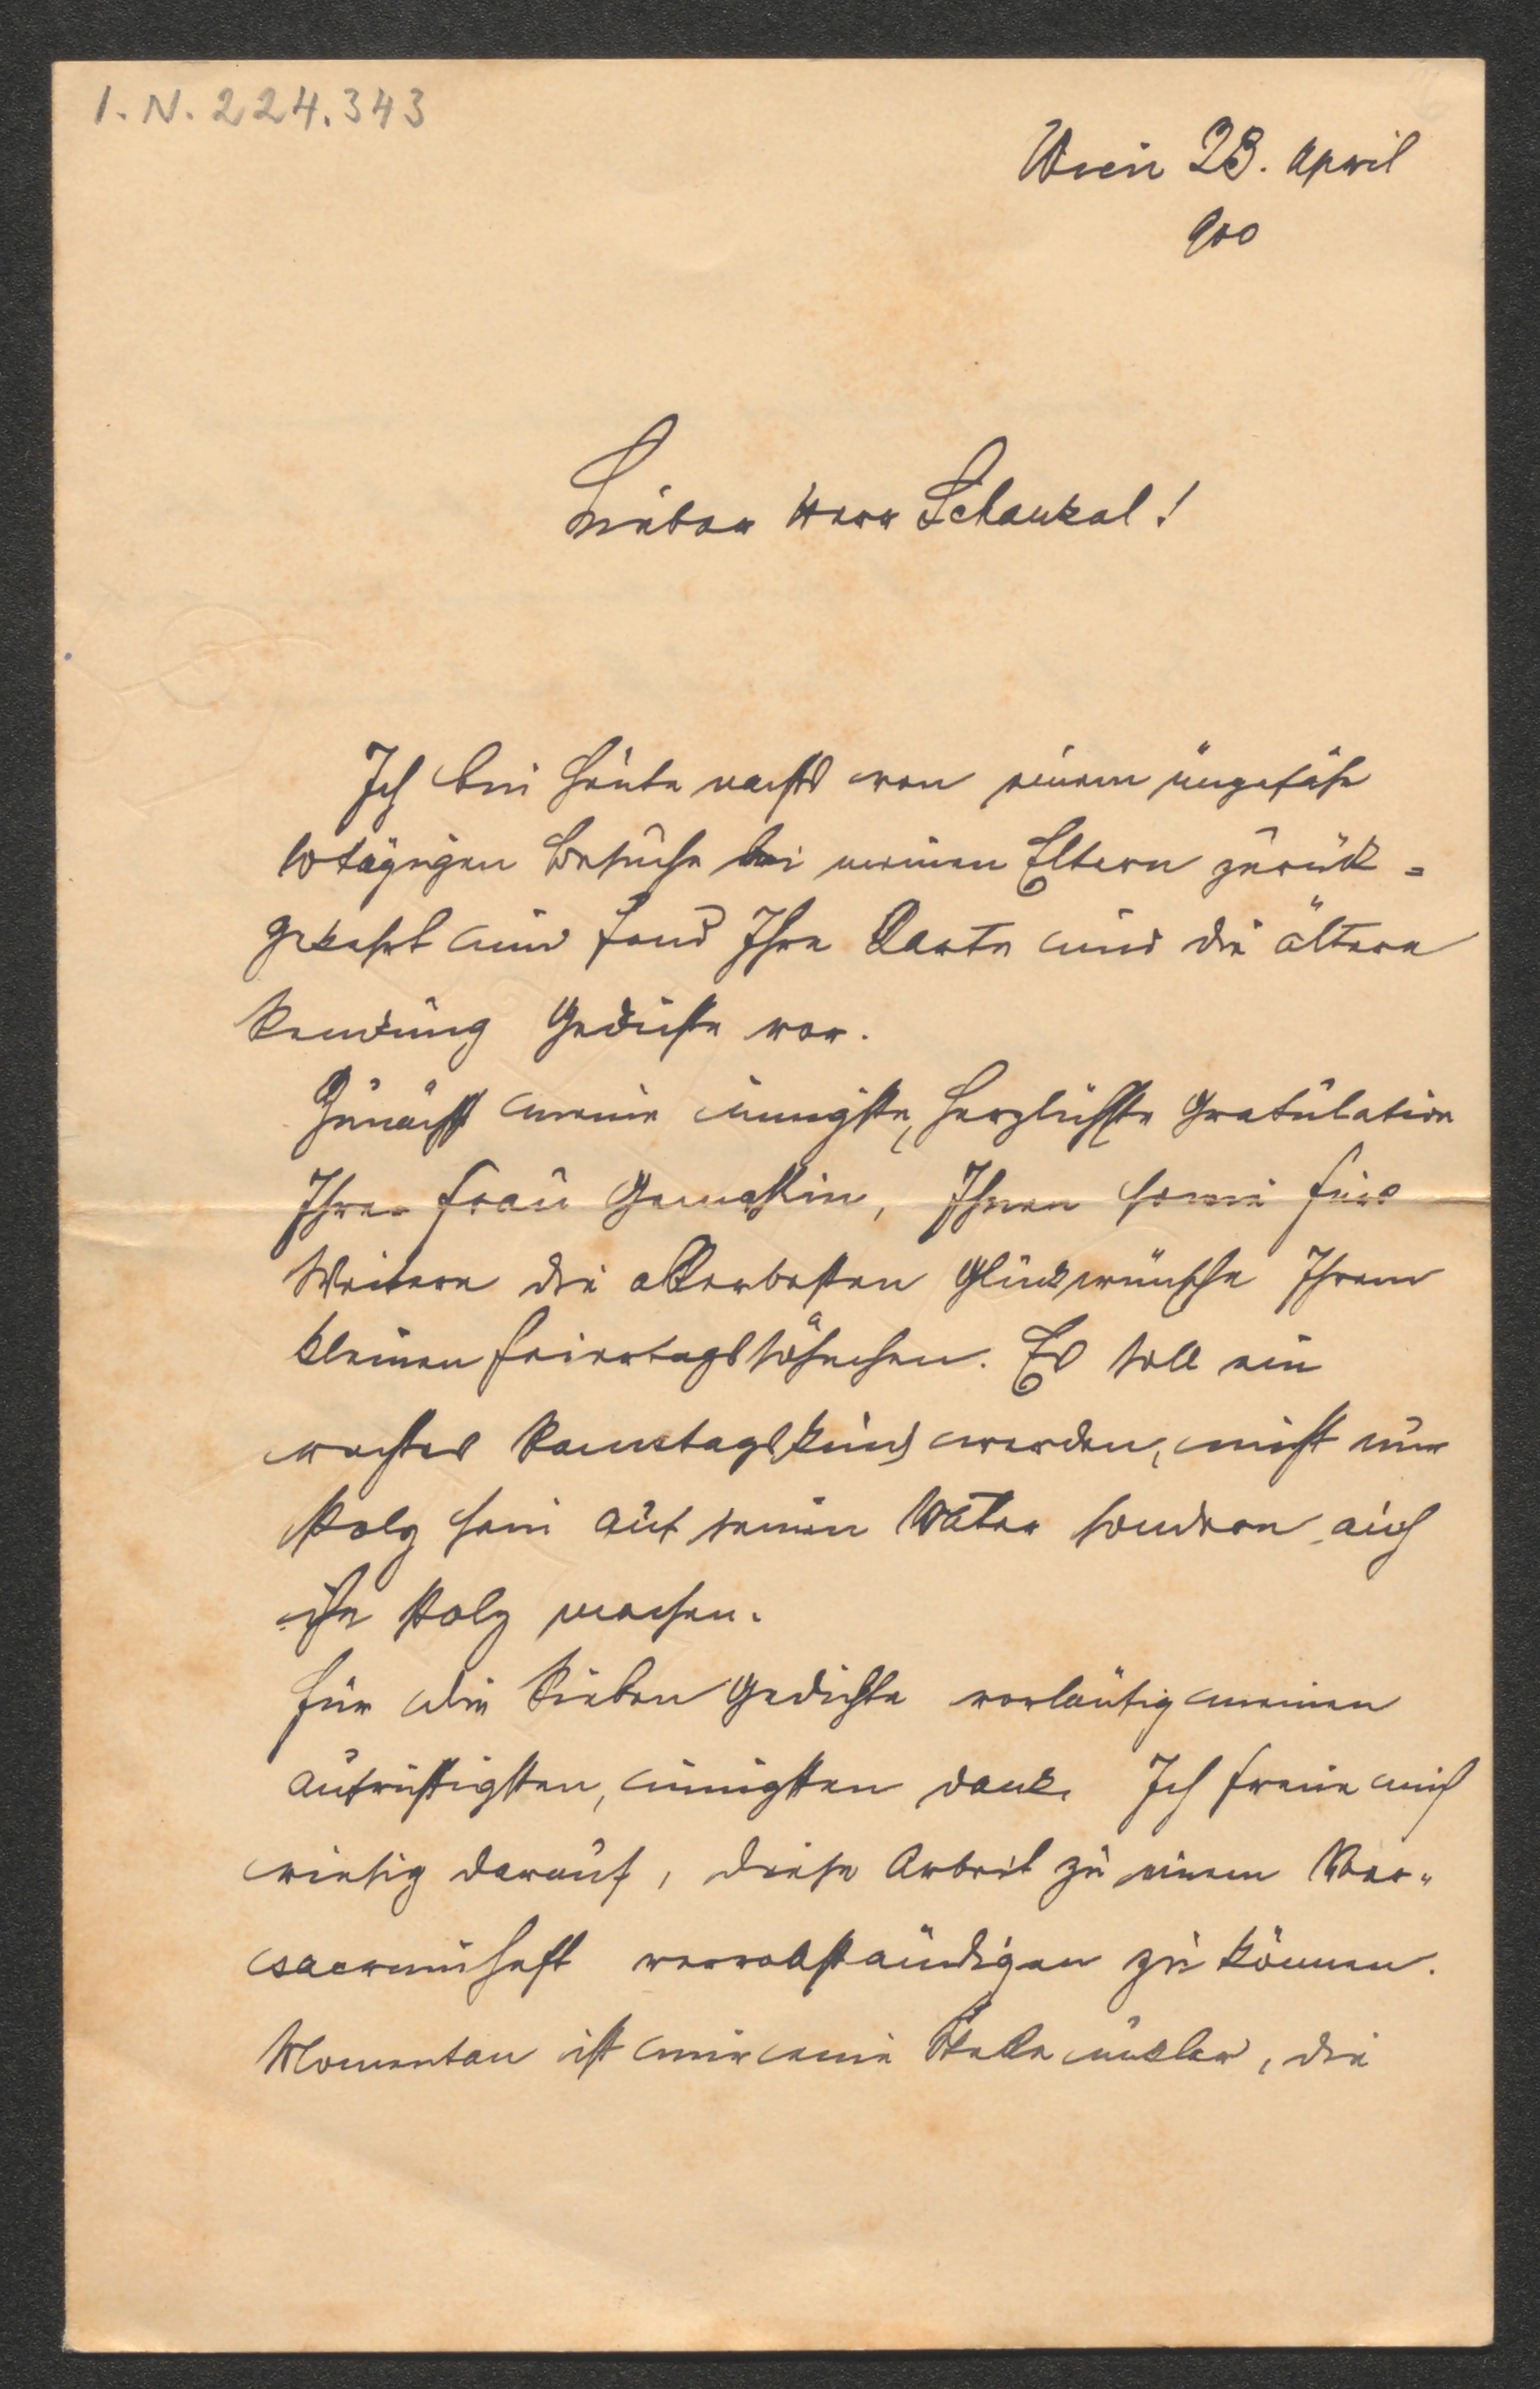 I.N. 224.343
Wien 23. April
900
Lieber Herr Schaukal!
Ich bin heute nachts von einem ungefähr
10 tägigen Besuche bei meinen Eltern zurück=
gekehrt und fand Ihre Karte und die ältere
Sendung Gedichte vor.
Zunächst meine innigste, herzlichste Gratulation
Ihrer Frau Gemahlin, Ihnen sowie fürs
Weitere die allerbesten Glückwünsche Ihrem
kleinen Feiertagssöhnchen. Es soll ein
rechtes Sonntagskind werden, nicht nur
stolz sein auf seinen Vater sondern auch
ihn stolz machen.
Für die lieben Gedichte vorläufig meinen
aufrichtigsten, innigsten Dank. Ich freue mich
riesig darauf, diese Arbeit zu einem Ver-
sacrumheft vervollständigen zu können.
Momentan ist mir eine Stelle unklar, die